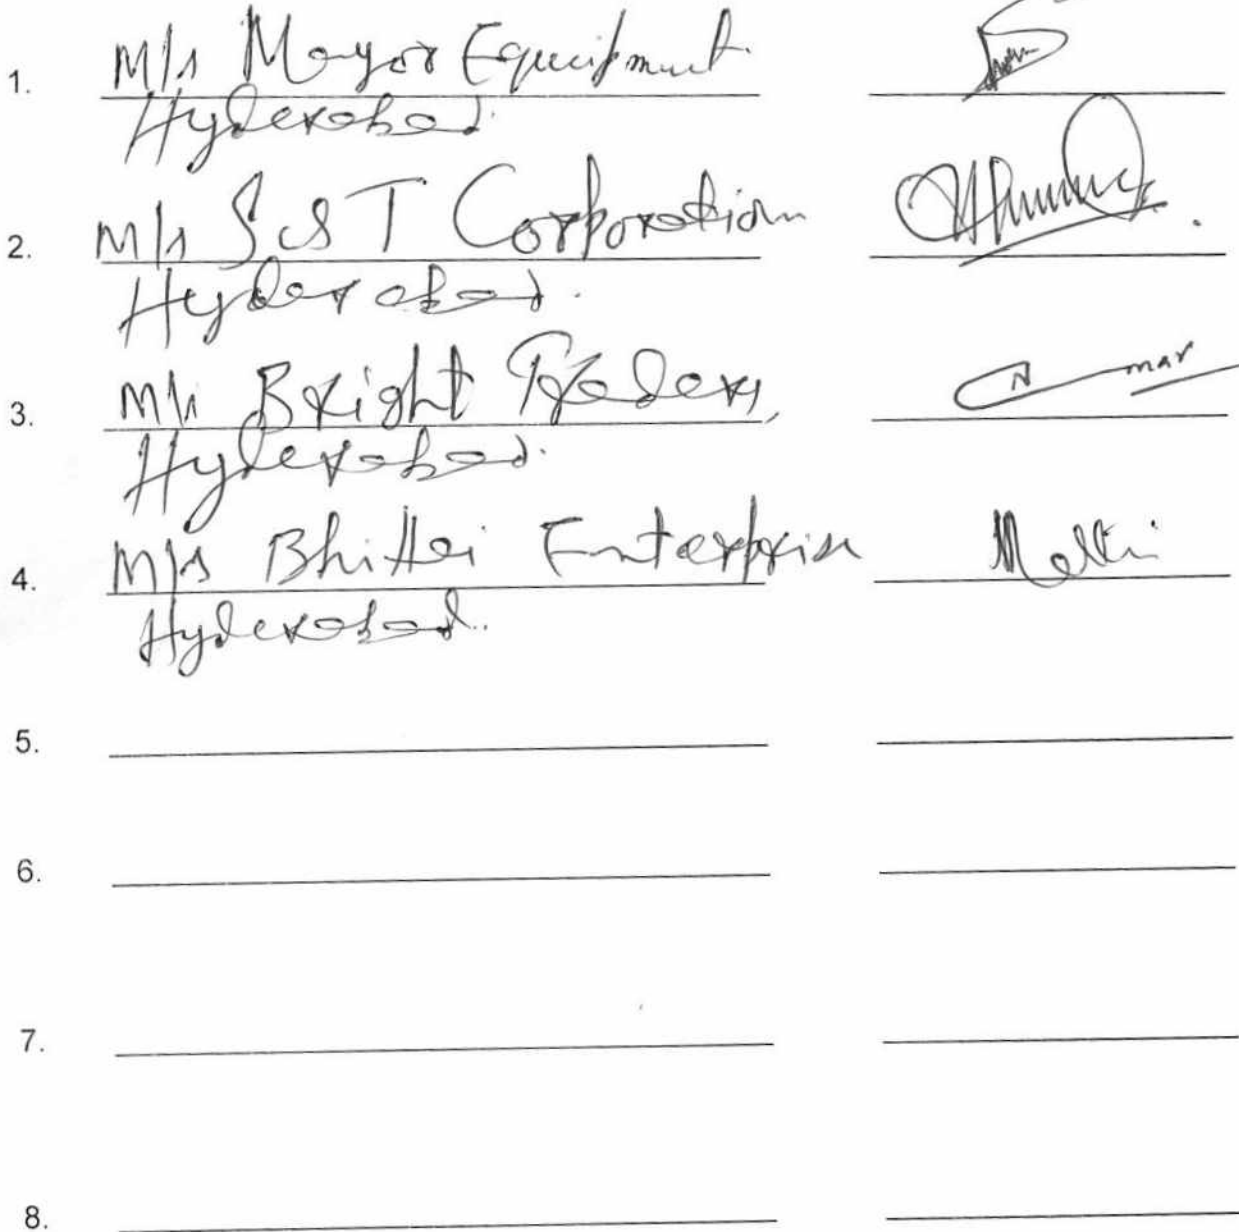 1. M/s Mayor Equipment
Hyderabad.
2. M/s S&T Corporation
Hyderabad.
3. M/s Bright Traders,
Hyderabad.
4. M/s Bhittai Enterprise
Hyderabad.
5.
6.
7.
8.